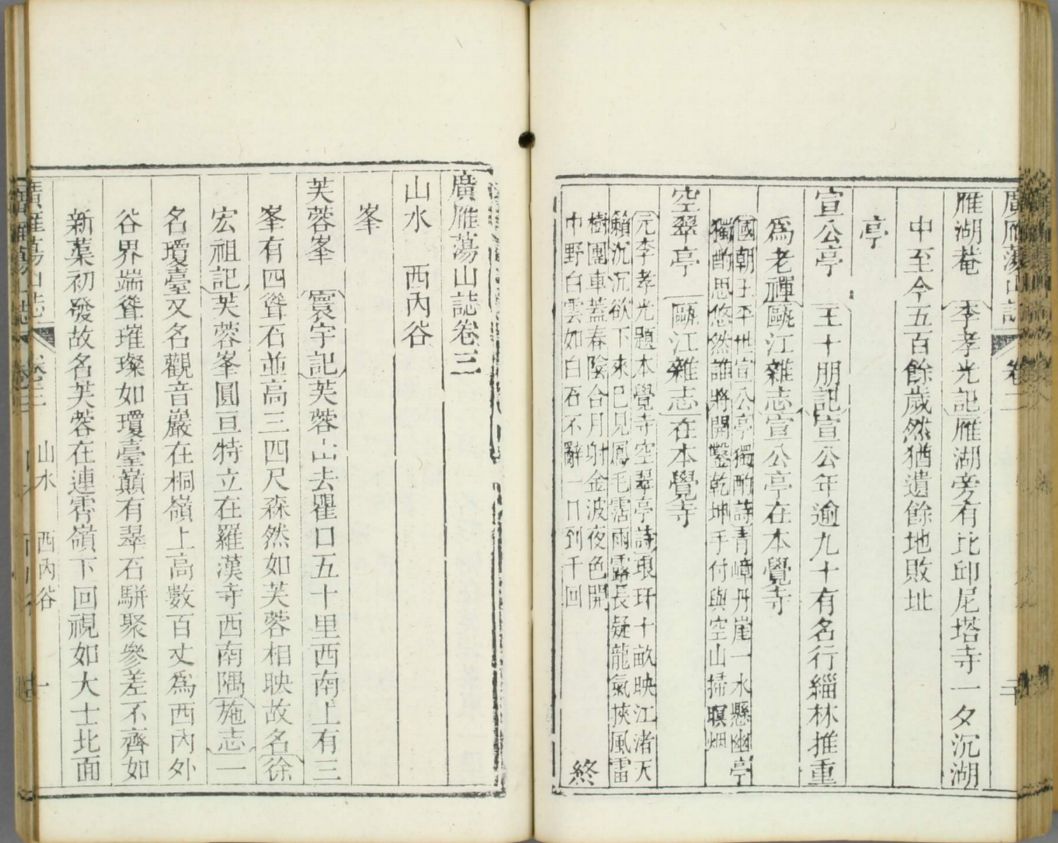 廣雁蕩山誌 卷二
雁湖菴 李孝光記雁湖旁有比邱尼塔寺一夕沉湖
中至今五百餘歲然猶遺餘地敗址
亭
宣公亭 王十朋記宣公年逾九十有名行緇林推重
為老禪甌江雜志宣公亭在本覺寺
國朝王平世宣公亭獨酌詩青嶂丹崖一水懸幽亭
獨酌思悠然誰將開鑿乾坤手付與空山掃暝烟
空翠亭 甌江雜志在本覺寺
元李孝光題本覺寺空翠亭詩琅玕十畝映江渚天
籟沉沉欲下來巳見鳳毛霑雨露長疑龍氣挾風雷
樹團車蓋春陰合月射金波夜色開
中野白雲如白石不辭一日到千回
終
廣雁蕩山誌卷三
山水 西內谷
峯
芙蓉峯 寰宇記芙蓉山去瞿口五十里西南上有三
峯有四聳石並高三四尺森然如芙蓉相映故名徐
宏祖記芙蓉峯圓亘特立在羅漢寺西南隅施志一
名瓊臺又名觀音巖在桐嶺上高數百丈為西內外
谷界端聳璀璨如瓊臺巔有翠石駢聚參差不齊如
新葉初發故名芙蓉在連霄嶺下回視如大士北面
廣雁蕩山誌 卷三 山水 西內谷 一